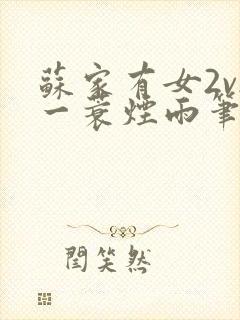 蘇家有女2v
一蓑煙雨筆
閆笑然